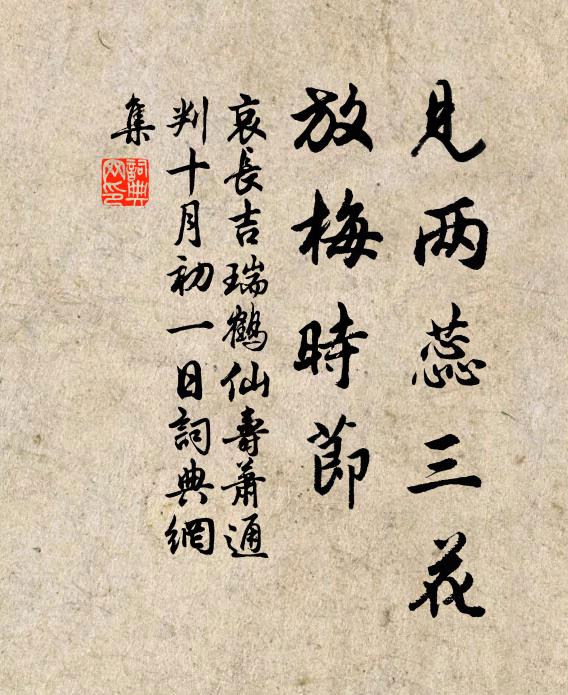 見两蕊三花
放梅時節
哀長吉瑞鶴仙壽蕭通
判十月初一日詞典網
集
詞典网印